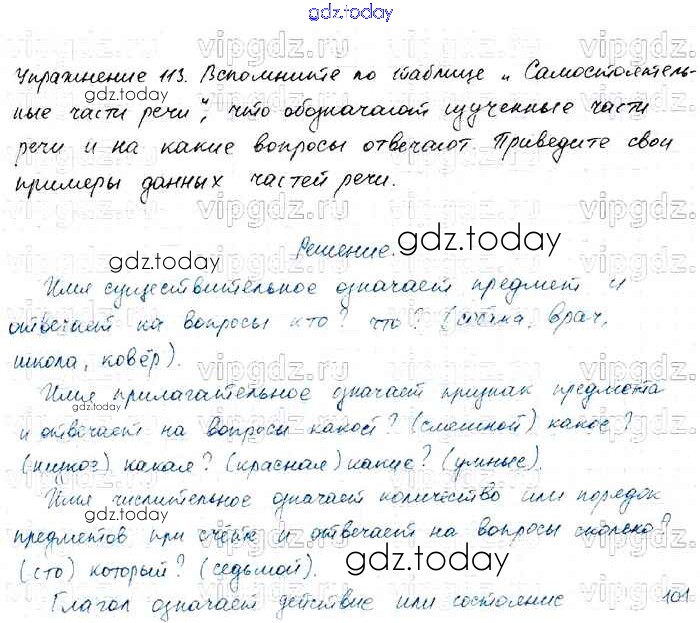 gdz.today
Упражнение 113. Вспомните по таблице „Самостоятель-
ные части речи", что обозначают изученные части
речи и на какие вопросы отвечают. Приведите свои
примеры данных частей речи.
Решение.
Имя существительное означает предмет и
отвечает на вопросы кто? что? (собака, врач,
школа, ковёр).
Имя прилагательное означает признак предмета
и отвечает на вопросы какой? (смешной) какое?
какая? (красная) какие? (умные).
Имя числительное означает количество или порядок
предметов при счёте и отвечает на вопросы сколько?
(сто) который? (седьмой).
Глагол означает действие или состояние 101